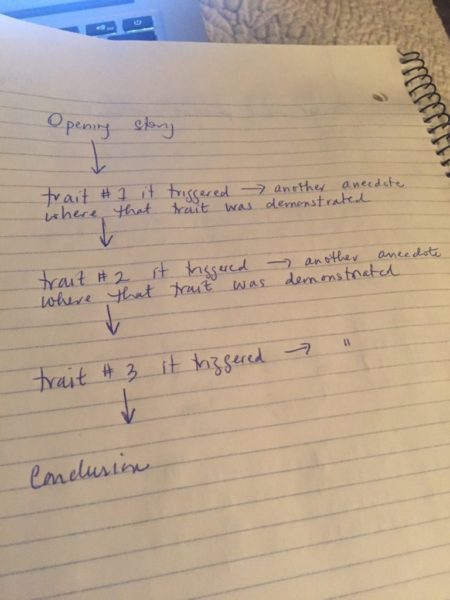 Opening story
↓
trait # 1 it triggered → another anecdote
where that trait was demonstrated
↓
trait # 2 it triggered → another anecdote
where that trait was demonstrated
↓
trait # 3 it triggered → "
↓
Conclusion